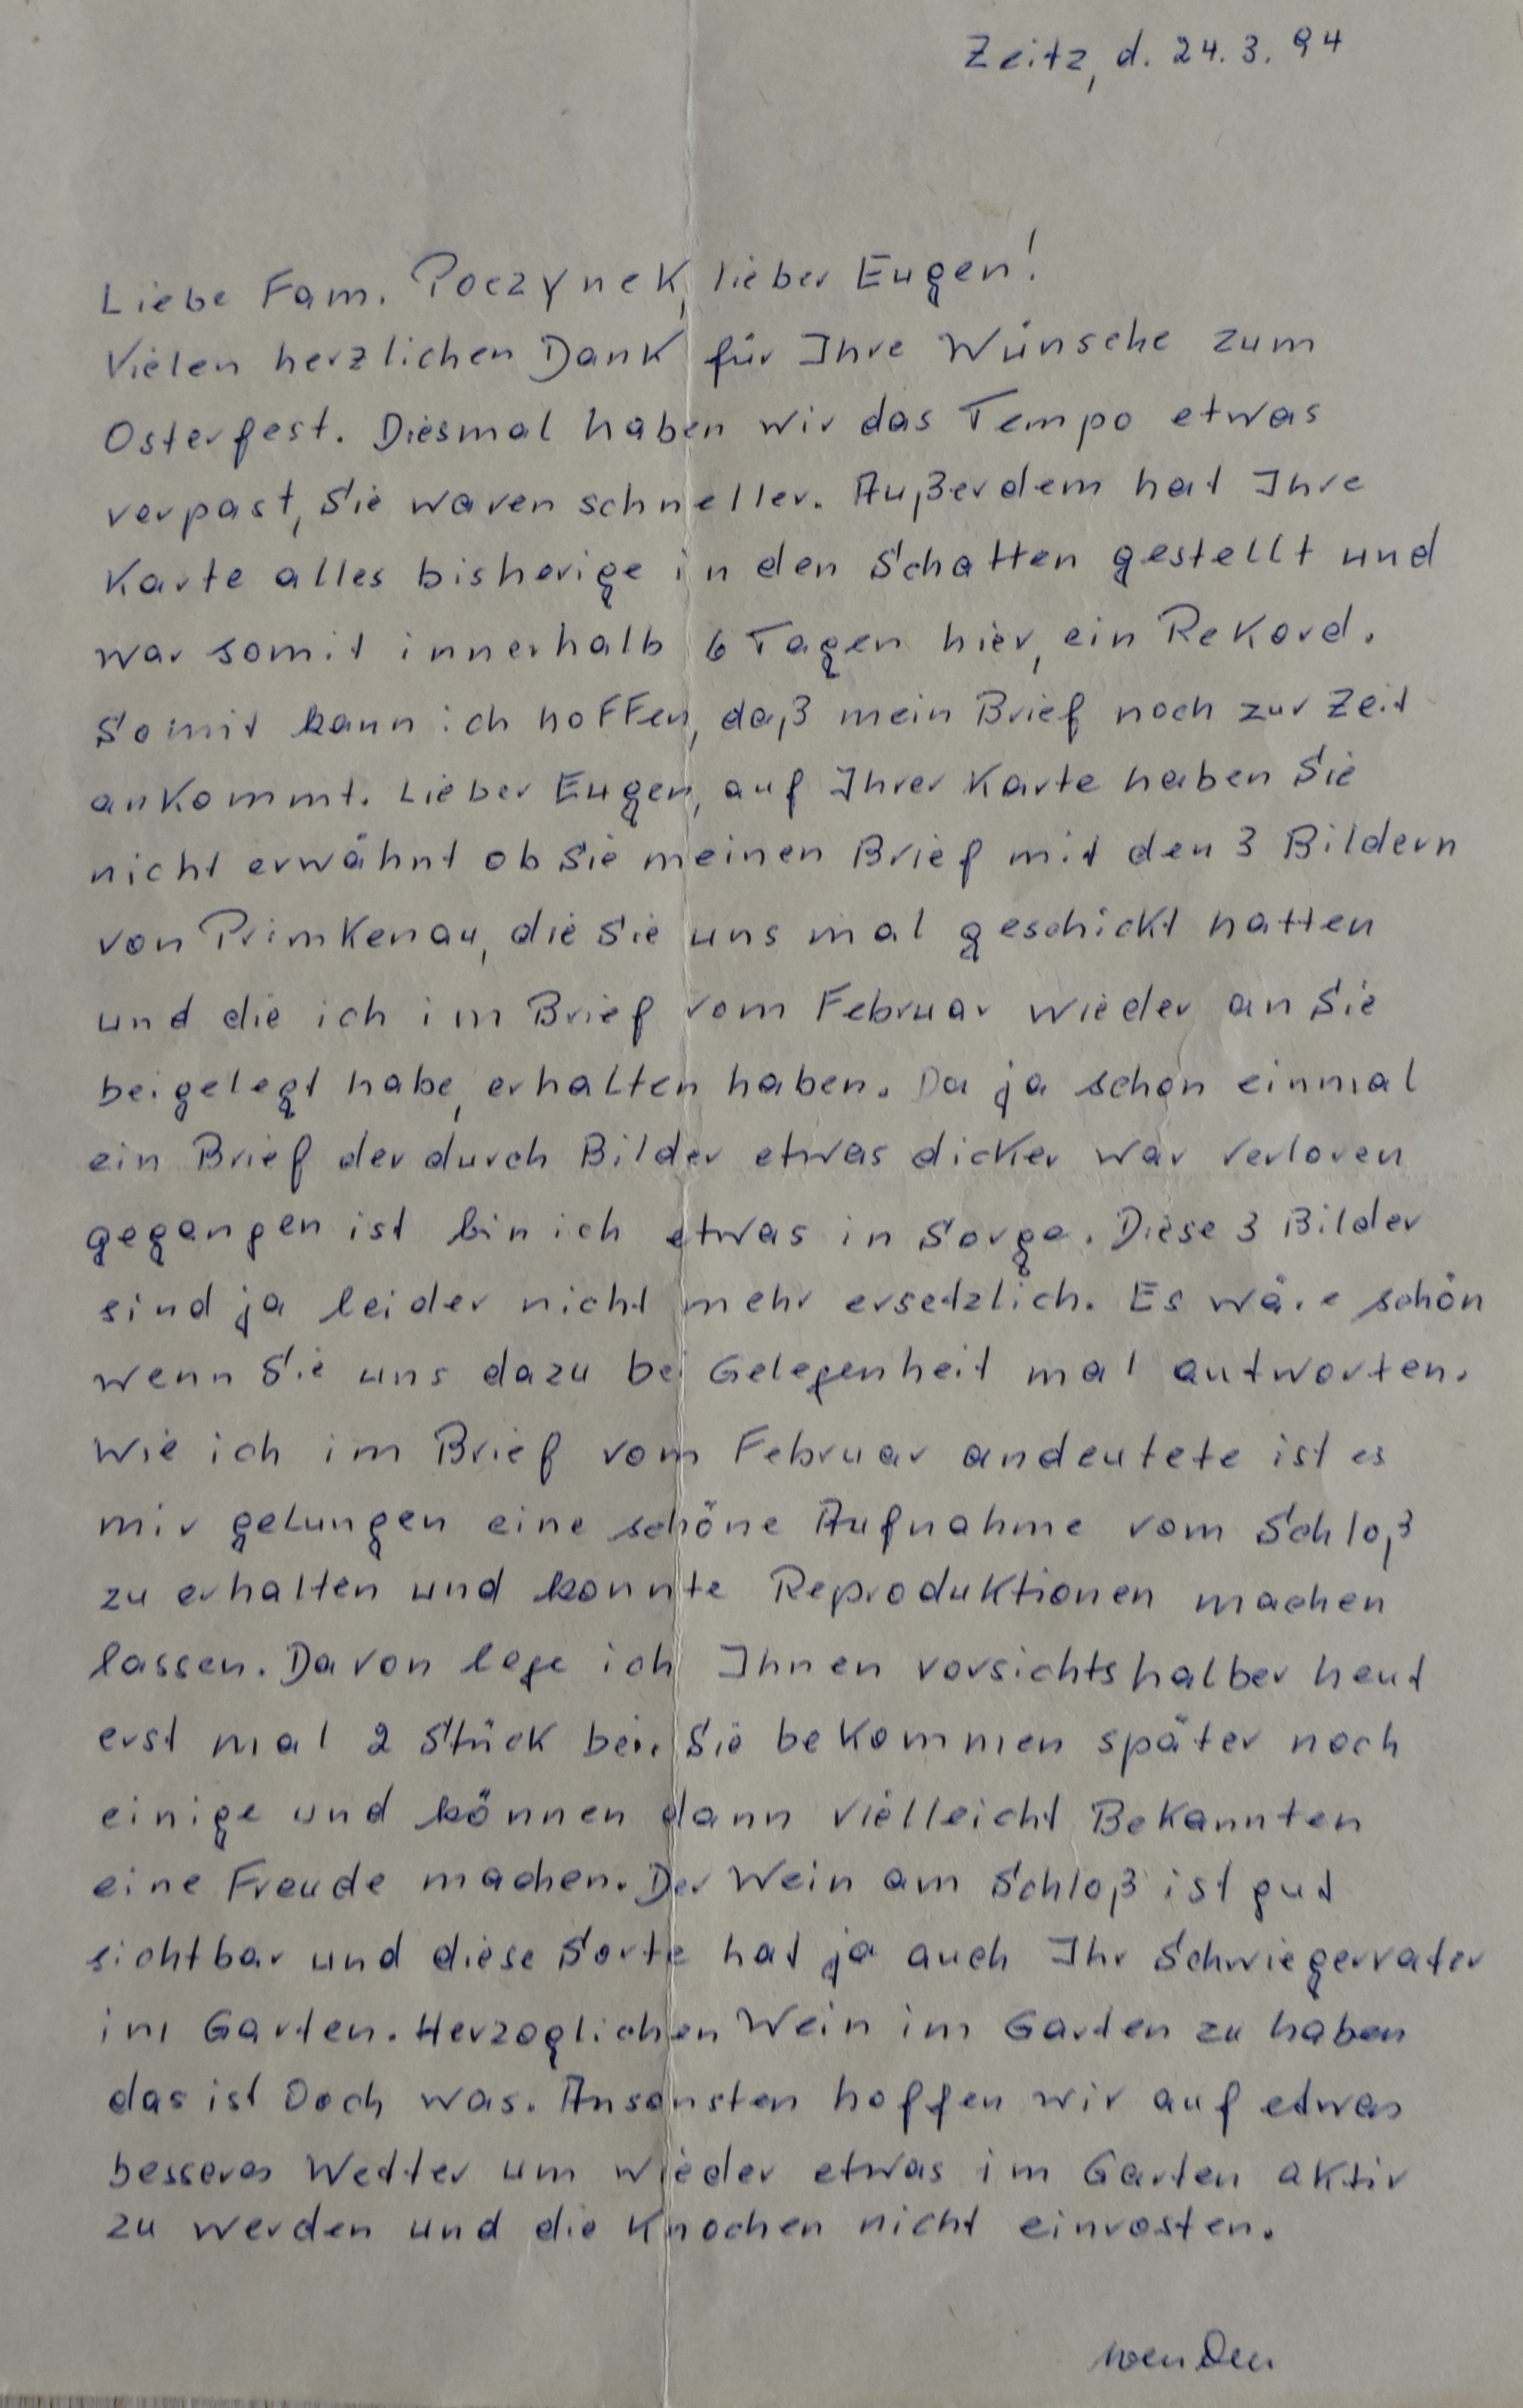 Zeitz, d. 24.3.94
Liebe Fam. Poczynek, lieber Eugen!
Vielen herzlichen Dank für Ihre Wünsche zum
Osterfest. Diesmal haben wir das Tempo etwas
verpast, Sie waren schneller. Außerdem hat Ihre
Karte alles bisherige in den Schatten gestellt und
war somit innerhalb 6 Tagen hier, ein Rekord.
Somit kann ich hoffen, daß mein Brief noch zur Zeit
ankommt. Lieber Eugen, auf Ihrer Karte haben Sie
nicht erwähnt ob Sie meinen Brief mit den 3 Bildern
von Primkenau, die Sie uns mal geschickt hatten
und die ich im Brief vom Februar wieder an Sie
beigelegt habe, erhalten haben. Da ja schon einmal
ein Brief der durch Bilder etwas dicker war verloren
gegangen ist bin ich etwas in Sorge. Diese 3 Bilder
sind ja leider nicht mehr ersetzlich. Es wäre schön
wenn Sie uns dazu bei Gelegenheit mal antworten.
Wie ich im Brief vom Februar andeutete ist es
mir gelungen eine schöne Aufnahme vom Schloß
zu erhalten und konnte Reproduktionen machen
lassen. Davon lege ich Ihnen vorsichtshalber heut
erst mal 2 Stück bei. Sie bekommen später noch
einige und können dann vielleicht Bekannten
eine Freude machen. Der Wein am Schloß ist gut
sichtbar und diese Sorte hat ja auch Ihr Schwiegervater
im Garten. Herzoglichen Wein im Garten zu haben
das ist Doch was. Ansonsten hoffen wir auf etwas
besseres Wetter um wieder etwas im Garten aktiv
zu werden und die Knochen nicht einrosten.
wenden